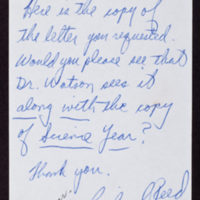 Here is the copy of
the letter you requested.
Would you please see that
Dr. Watson sees it
along with the copy
of Science Year?
Thank you.
Reed